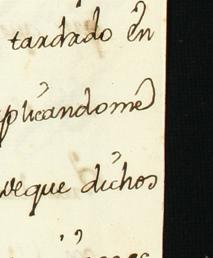 tardado en
plicandome
veque dichos